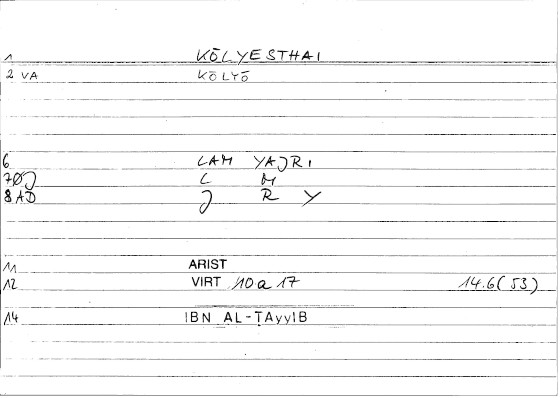 1 KŌLYESTHAI
2 VA KŌLYŌ
6 LAM YAJRI
7ØJ L M
8 AD J R Y
11 ARIST
12 VIRT 10a17 14.6(53)
14 IBN AL-ṬAyyIB